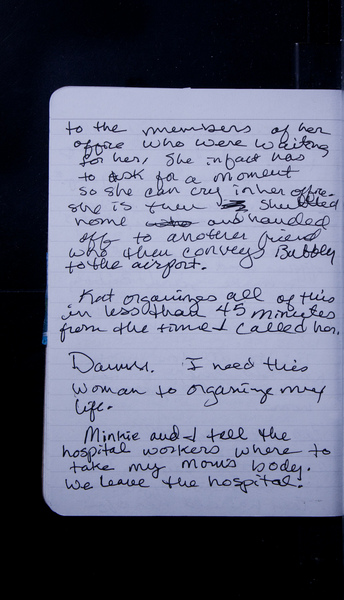 to the members of her
office who were waiting
for her, She infact has
to ask for a moment
so she can cry in her office.
she is then shuttled
home and handed
off to another friend
who then conveys Bubbly
to the airport.
Kat organizes all of this
in less than 45 minutes
from the time I called her.
Damn. I need this
woman to organize my
life.
Minkie and I tell the
hospital workers where to
take my mom's body.
We leave the hospital.